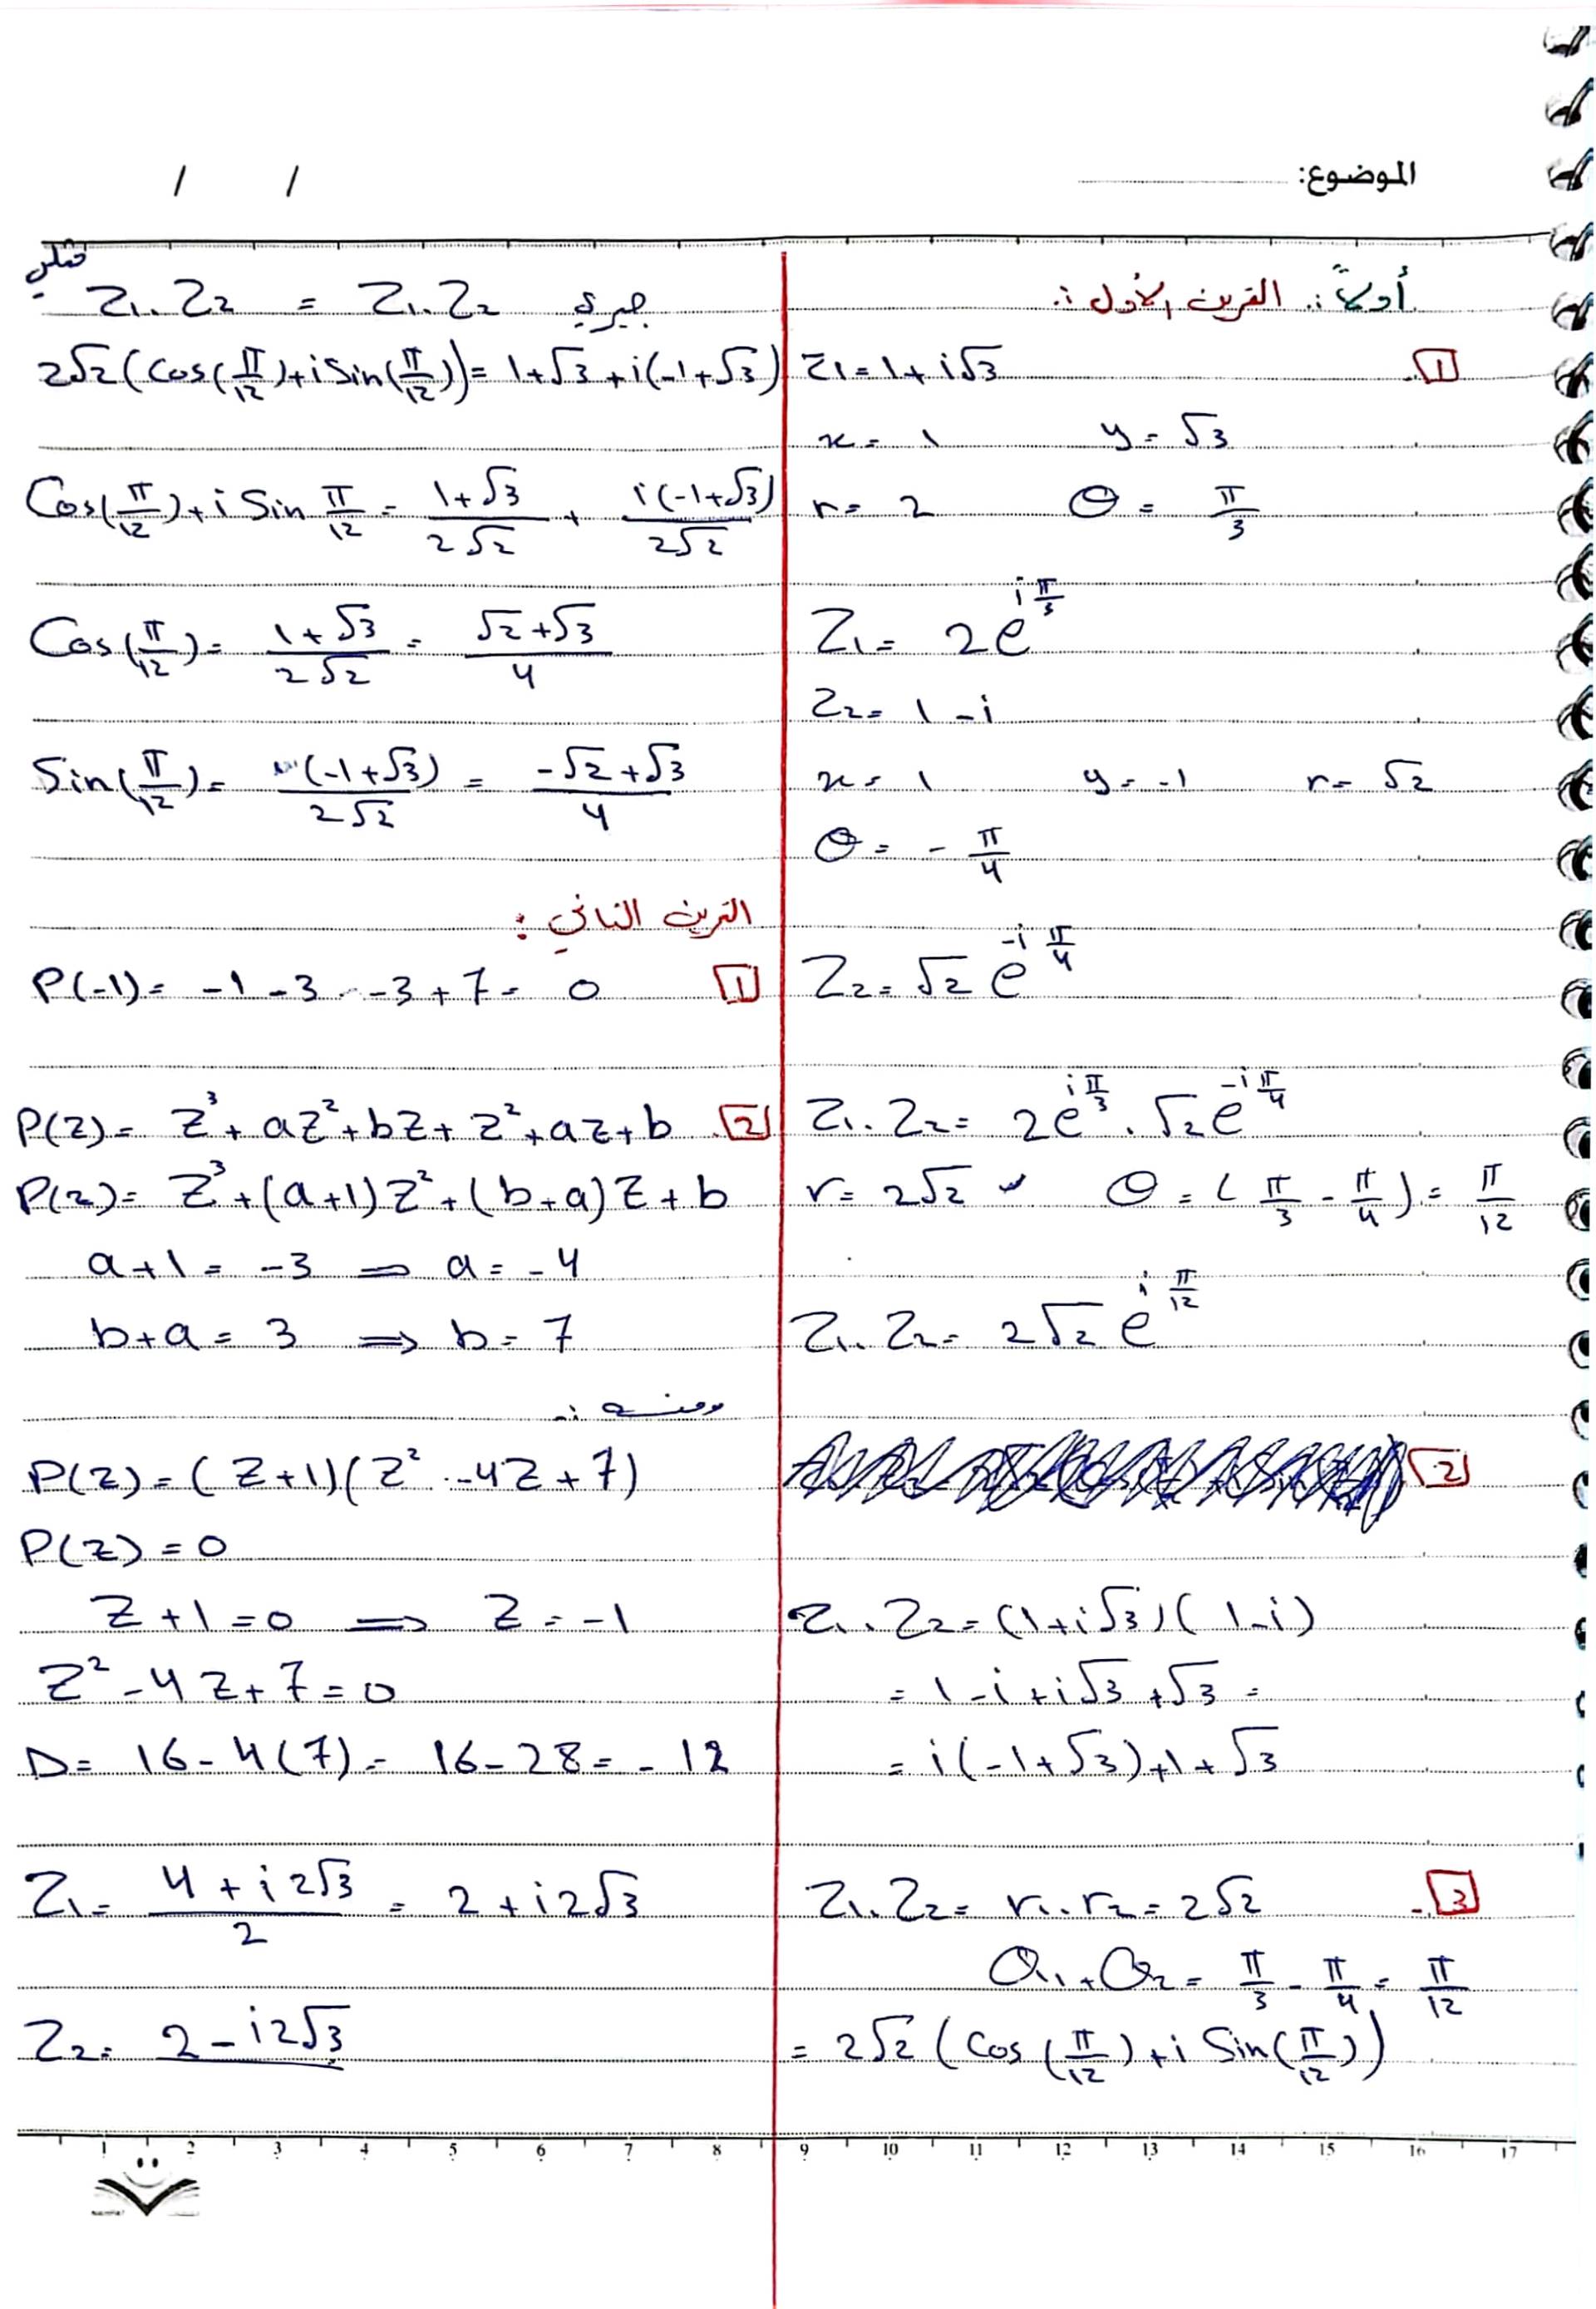 الموضوع:
/ /
أولاً: التمرين الأول:
1
Z₁ = 1 + i√3
x = 1 y = √3
r = 2 θ = π/3
Z₁ = 2e^(iπ/3)
Z₂ = 1 - i
x = 1 y = -1 r = √2
θ = - π/4
Z₂ = √2 e^(-iπ/4)
Z₁ . Z₂ = 2e^(iπ/3) . √2e^(-iπ/4)
r = 2√2 θ = (π/3 - π/4) = π/12
Z₁ . Z₂ = 2√2 e^(iπ/12)
2
Z₁ . Z₂ = (1+i√3)(1-i)
= 1 - i + i√3 + √3 =
= i(-1+√3)+1+√3
3
Z₁ . Z₂ = r₁ . r₂ = 2√2
θ₁ + θ₂ = π/3 - π/4 = π/12
= 2√2 (Cos(π/12) + i Sin(π/12))
مثلثي Z₁ . Z₂ = Z₁ . Z₂ جبري
2√2 (Cos(π/12)+i Sin(π/12)) = 1+√3 + i(-1+√3)
Cos(π/12) + i Sin π/12 = (1+√3)/(2√2) + i(-1+√3)/(2√2)
Cos(π/12) = (1+√3)/(2√2) = (√2+√3)/4
Sin(π/12) = (-1+√3)/(2√2) = (-√2+√3)/4
التمرين الثاني:
1
P(-1) = -1 - 3 - 3 + 7 = 0
2
P(Z) = Z³ + aZ² + bZ + Z² + aZ + b
P(Z) = Z³ + (a+1)Z² + (b+a)Z + b
a + 1 = -3 ⇒ a = -4
b + a = 3 ⇒ b = 7
ومنه :
P(Z) = (Z+1)(Z² - 4Z + 7)
P(Z) = 0
Z + 1 = 0 ⇒ Z = -1
Z² - 4Z + 7 = 0
D = 16 - 4(7) = 16 - 28 = -12
Z₁ = (4 + i2√3)/2 = 2 + i2√3
Z₂ = 2 - i2√3
1 2 3 4 5 6 7 8 9 10 11 12 13 14 15 16 17